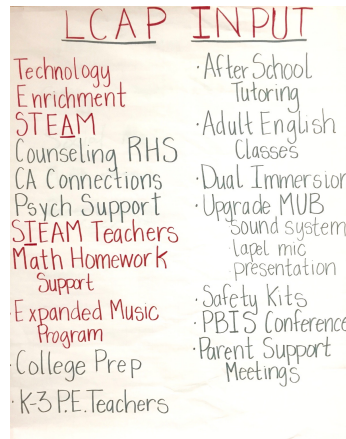 LCAP INPUT
Technology
Enrichment
STEAM
Counseling RHS
CA Connections
Psych Support
STEAM Teachers
Math Homework
Support
· Expanded Music
Program
· College Prep
· K-3 P.E. Teachers
· After School
Tutoring
· Adult English
Classes
· Dual Immersion
· Upgrade MUB
sound system
lapel mic
presentation
· Safety Kits
· PBIS Conference
· Parent Support
Meetings